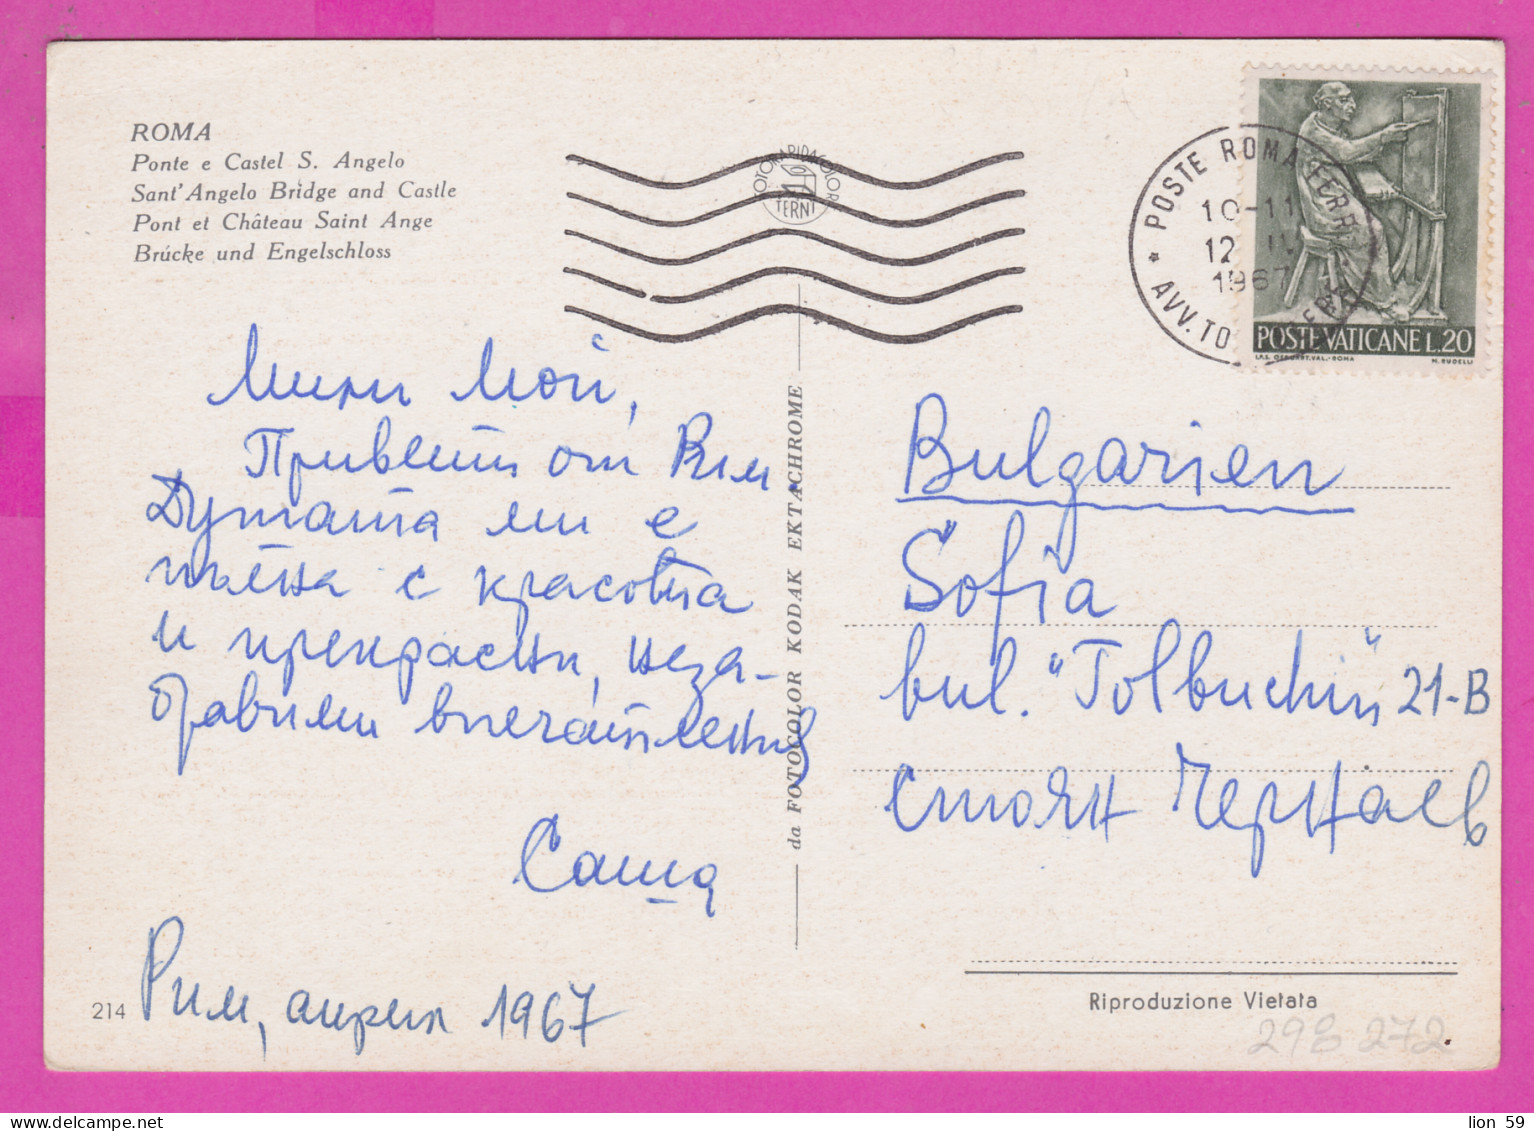 ROMA
Ponte e Castel S. Angelo
Sant'Angelo Bridge and Castle
Pont et Château Saint Ange
Brücke und Engelschloss
FOTORAPIDACOLOR
TERNI
POSTE ROMA FERR
10-11
12
1967
AVV. TO
POSTE VATICANE L.20
M. RUDELLI
Мили мой,
Привет от Рим.
Душата ми е
пълна с красота
и прекрасни, неза-
бравими впечатления
Саша
Рим, април 1967
214
da FOTOCOLOR KODAK EKTACHROME
Bulgarien
Sofia
bul. "Tolbuchin" 21-B
Стоян Чернаев
Riproduzione Vietata
298 272
lion 59